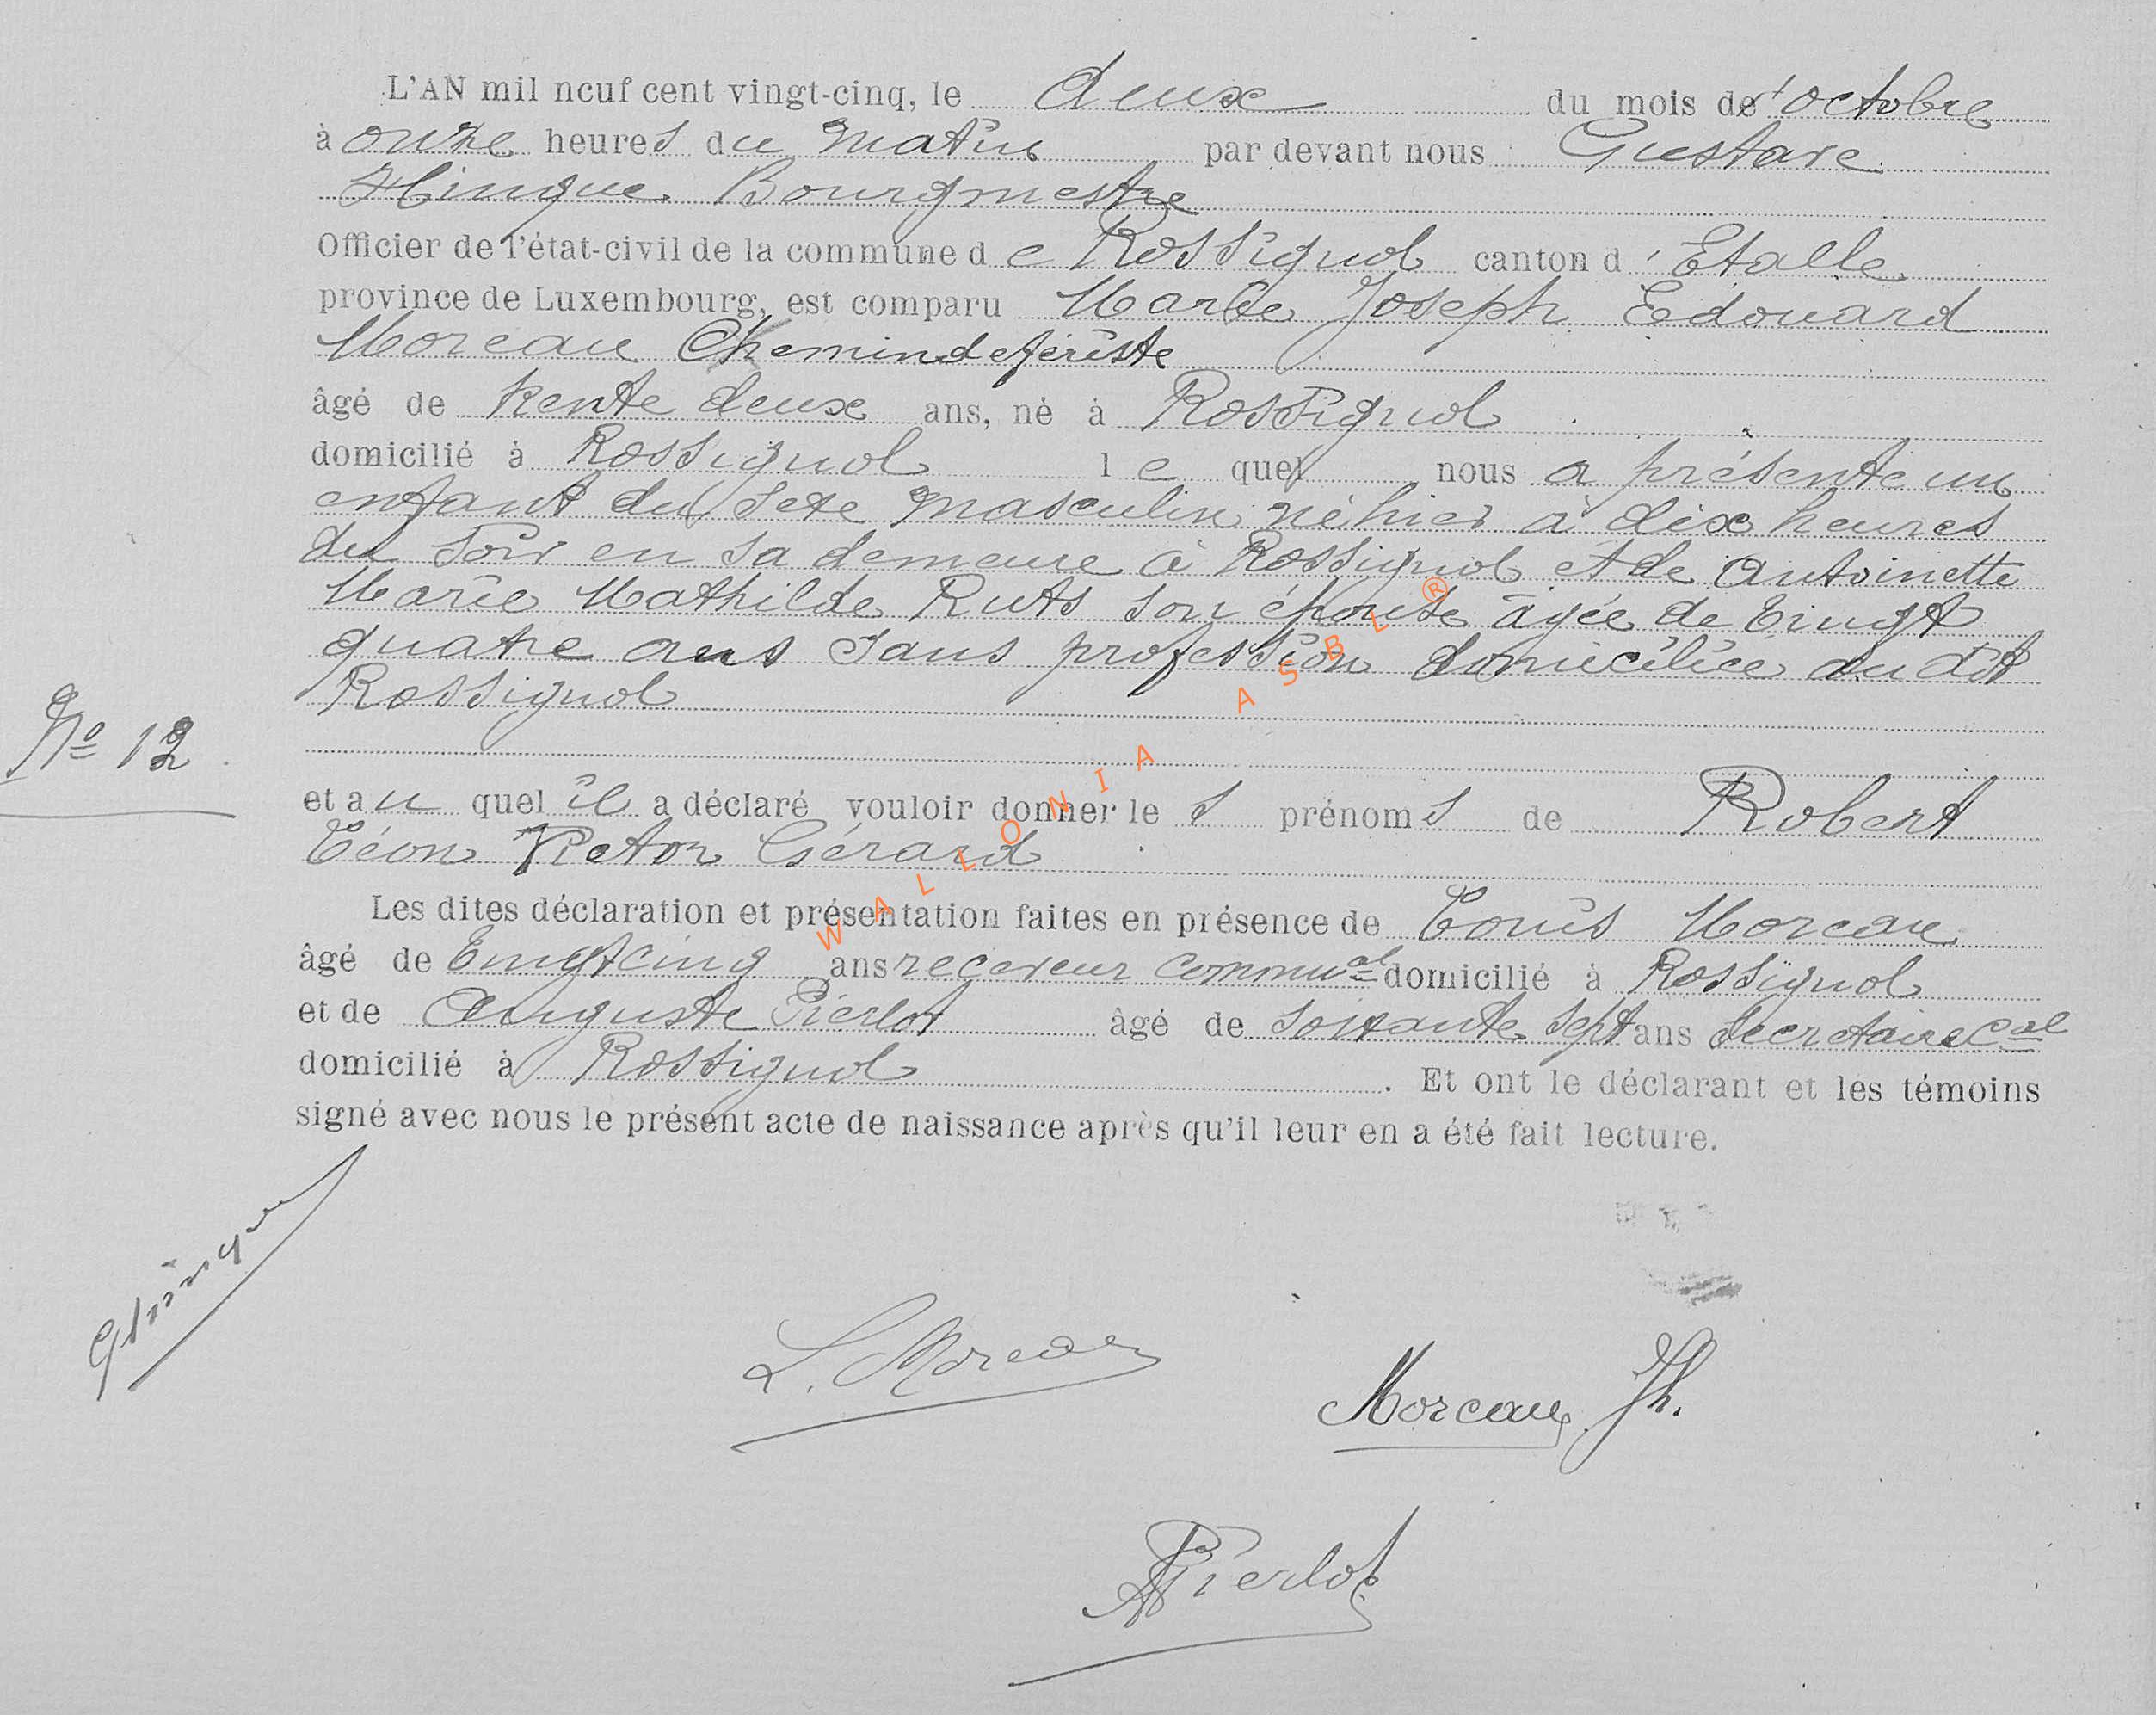 L'AN mil neuf cent vingt-cinq, le deux du mois d'octobre
à onze heures du matin par devant nous Gustave
Hinque Bourgmestre
Officier de l'état-civil de la commune de Rossignol canton d'Etalle
province de Luxembourg, est comparu Marie Joseph Edouard
Moreau Chemindefériste
âgé de trente deux ans, né à Rossignol
domicilié à Rossignol lequel nous a présenté un
enfant du sexe masculin né hier à dix heures
du soir en sa demeure à Rossignol et de Antoinette
Marie Mathilde Ruts son épouse âgée de vingt
quatre ans sans profession domiciliée au dit
Rossignol
No 12
et au quel il a déclaré vouloir donner les prénoms de Robert
Léon Victor Gérard
Les dites déclaration et présentation faites en présence de Louis Moreau
âgé de vingt cinq ans receveur commual domicilié à Rossignol
et de Auguste Pierlot âgé de soixante sept ans secrétaire cal
domicilié à Rossignol. Et ont le déclarant et les témoins
signé avec nous le présent acte de naissance après qu'il leur en a été fait lecture.
GHinque
L. Moreau
Moreau Jh.
A Pierlot
WALLONIA ASBL ®